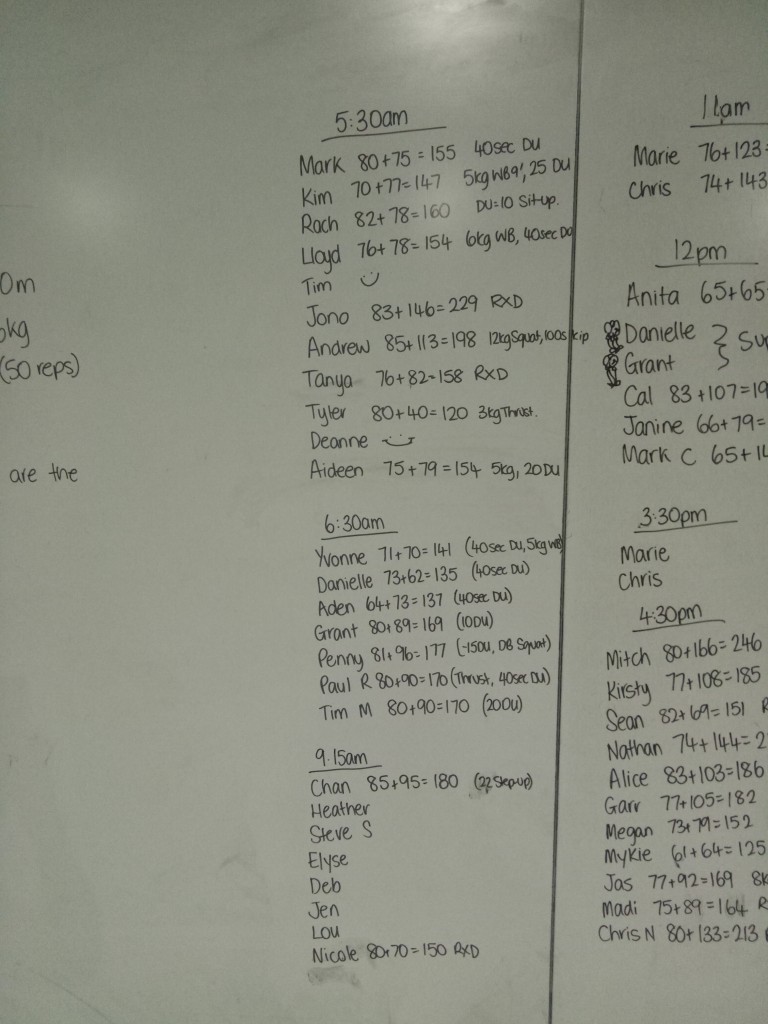 0m
kg
(50 reps)
are the
5:30am
Mark 80+75=155 40sec DU
Kim 70+77=147 5kg WB9', 25 DU
Rach 82+78=160 DU=10 Situp.
Lloyd 76+78=154 6kg WB, 40sec DU
Tim
Jono 83+146=229 RXD
Andrew 85+113=198 12kg Squat, 100skip
Tanya 76+82=158 RXD
Tyler 80+40=120 3kg Thrust.
Deanne
Aideen 75+79=154 5kg, 20DU
6:30am
Yvonne 71+70=141 (40sec DU, 5kg WB)
Danielle 73+62=135 (40sec DU)
Aden 64+73=137 (40sec DU)
Grant 80+89=169 (10DU)
Penny 81+96=177 (-15DU, DB Squat)
Paul R 80+90=170 (Thrust, 40sec DU)
Tim M 80+90=170 (20DU)
9:15am
Chan 85+95=180 (Step up)
Heather
Steve S
Elyse
Deb
Jen
Lou
Nicole 80+70=150 RXD
11am
Marie 76+123=
Chris 74+143
12pm
Anita 65+65
Danielle
Grant
Cal 83+107=19
Janine 66+79=
Mark C 65+14
3:30pm
Marie
Chris
4:30pm
Mitch 80+166=246
Kirsty 77+108=185
Sean 82+69=151 R
Nathan 74+144=2
Alice 83+103=186
Garr 77+105=182
Megan 73+79=152
Mykie 61+64=125
Jas 77+92=169 8k
Madi 75+89=164 R
Chris N 80+133=213